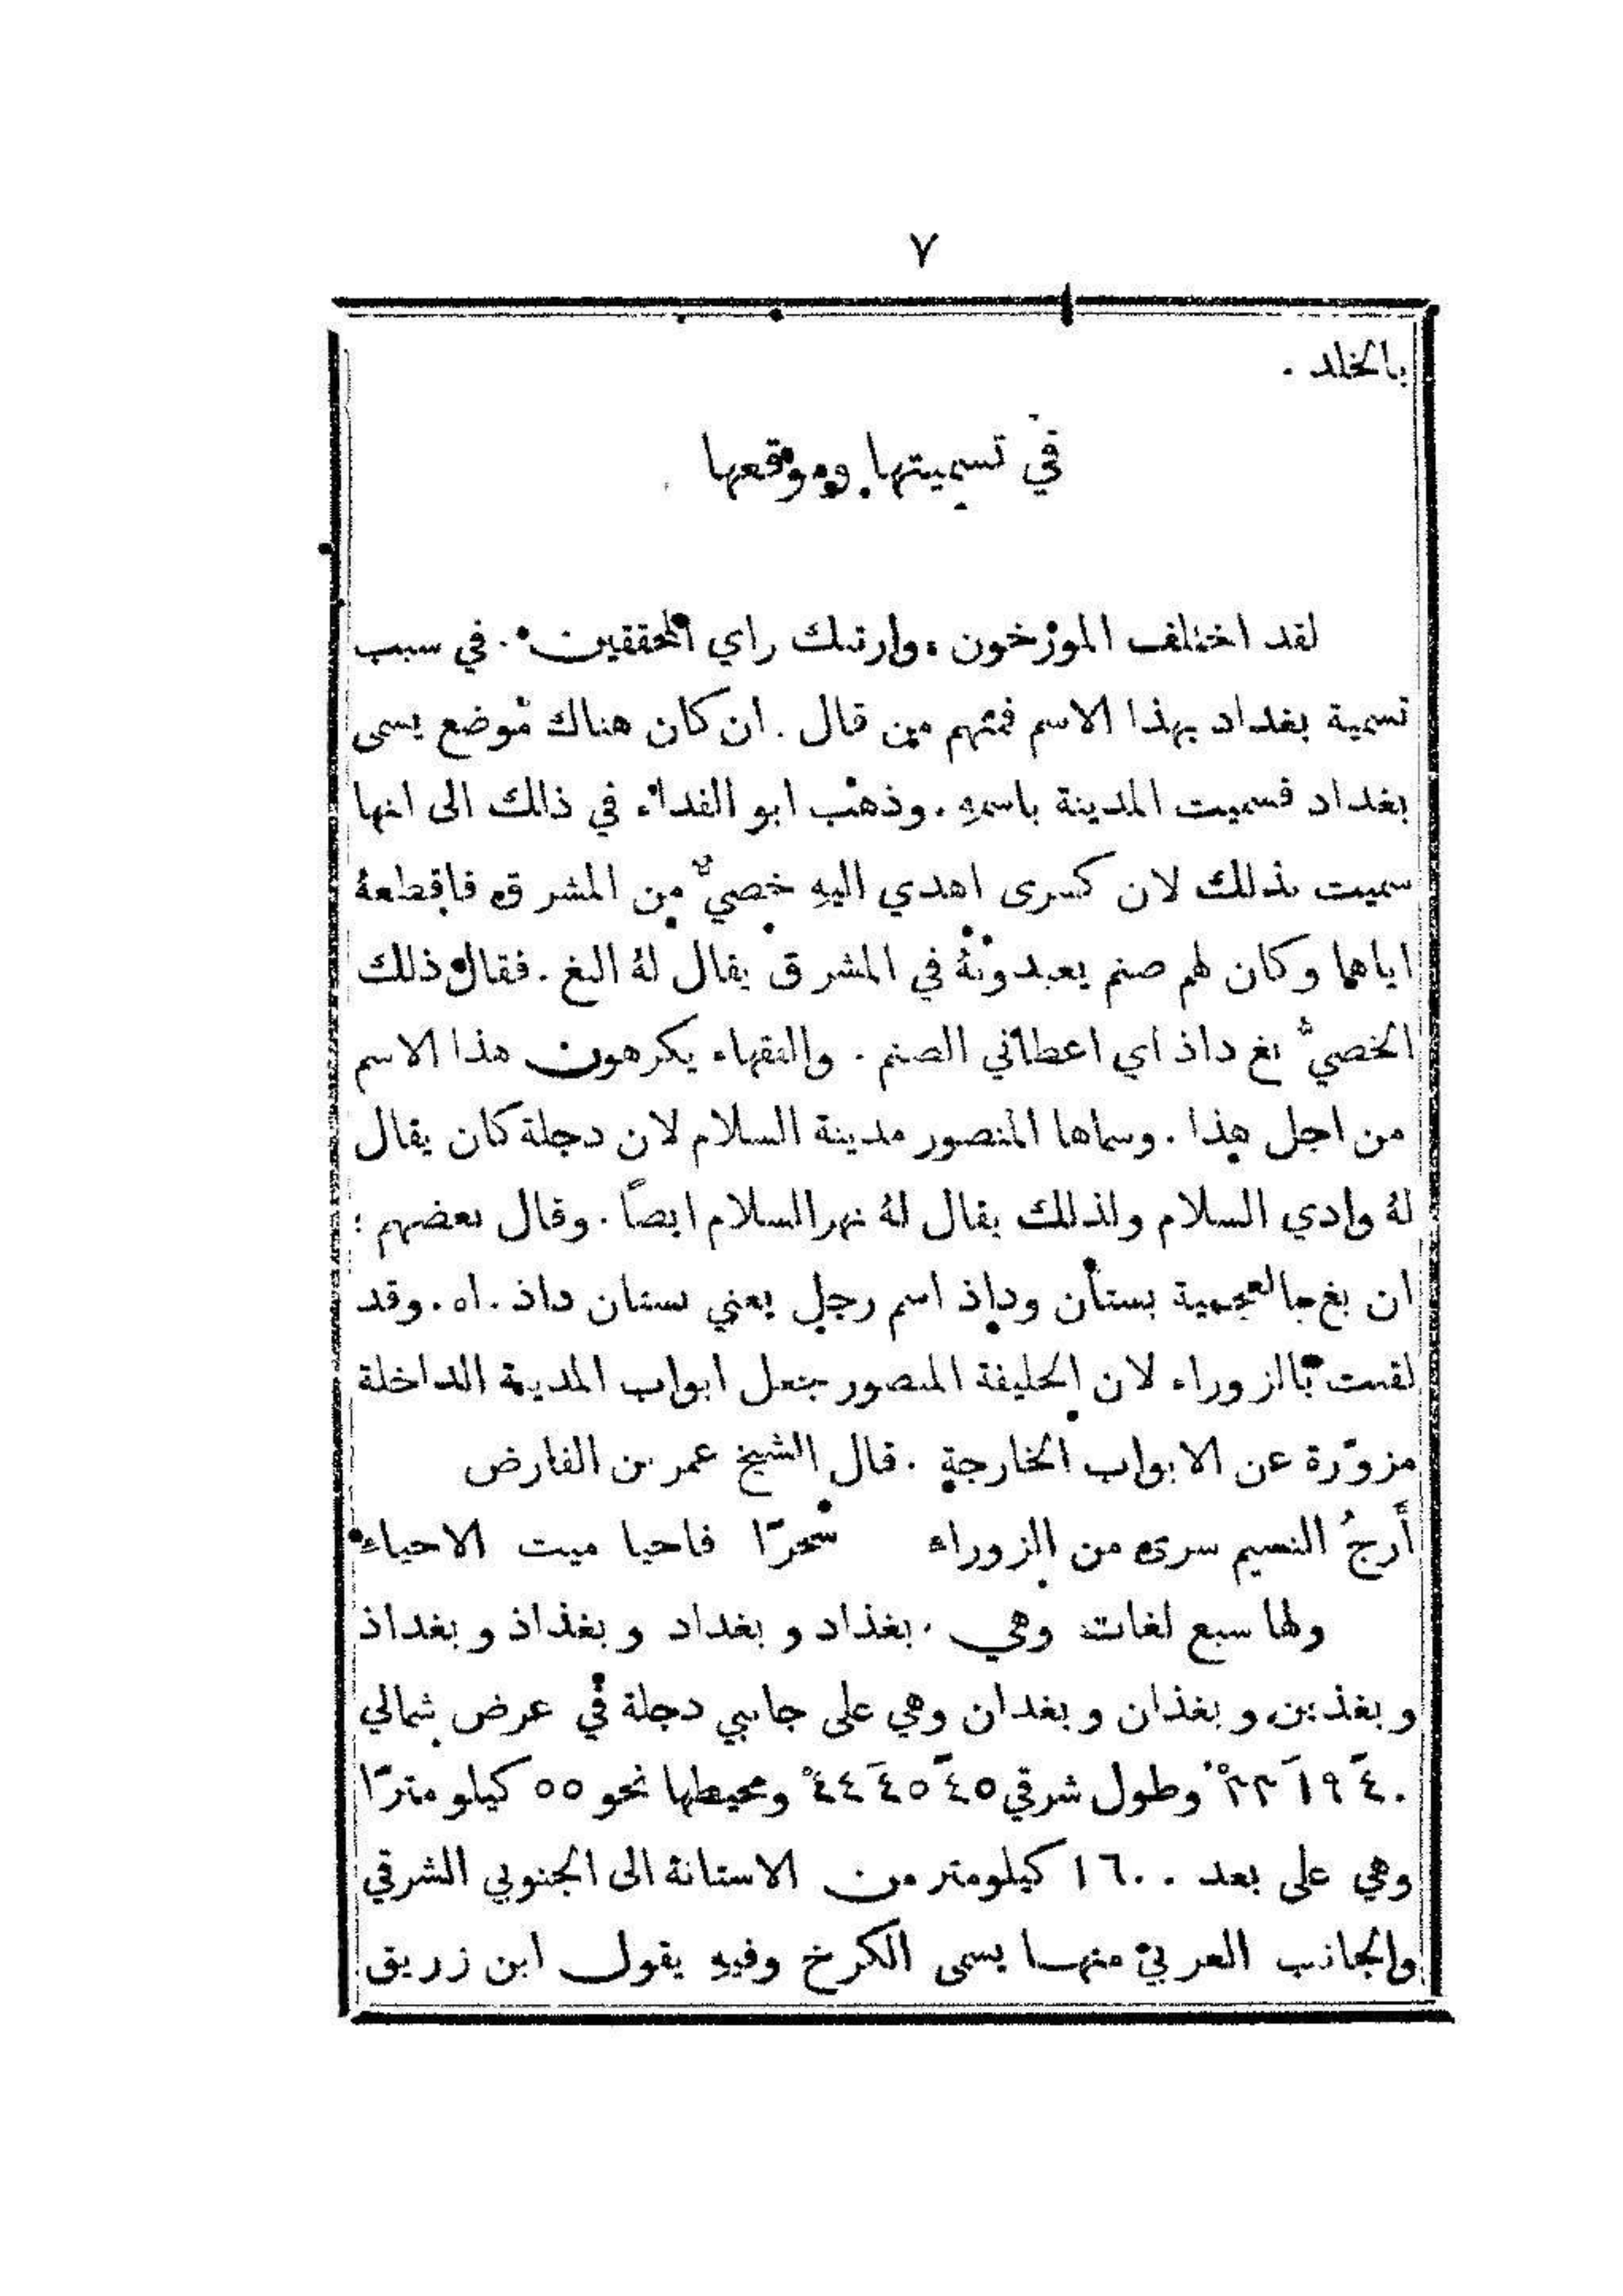 ٧
بالخلد .
في تسميتها وموقعها
لقد اختلف المؤرخون وارتبك راي المحققين . في سبب
تسمية بغداد بهذا الاسم فمنهم من قال . ان كان هناك موضع يسمى
بغداد فسميت المدينة باسمهِ . وذهب ابو الفداء في ذلك الى انها
سميت بذلك لان كسرى اهدي اليهِ خصيٌّ من المشرق فاقطعهُ
اياها وكان لهم صنم يعبدونهُ في المشرق يقال لهُ البغ . فقال ذلك
الخصيُّ بغ داذ اي اعطاني الصنم . والفقهاء يكرهون هذا الاسم
من اجل هذا . وسماها المنصور مدينة السلام لان دجلة كان يقال
لهُ وادي السلام ولذلك يقال لهُ نهر السلام ايضاً . وقال بعضهم :
ان بغ بالعجمية بستان وداذ اسم رجل يعني بستان داذ . اه . وقد
لقبت بالزوراء لان الخليفة المنصور جعل ابواب المدينة الداخلة
مزوَّرة عن الابواب الخارجة . قال الشيخ عمر بن الفارض
أَرجُ النسيم سرى من الزوراء سحرًا فاحيا ميت الاحياء
ولها سبع لغات وهي . بغذاد و بغداد و بغذاذ و بغداذ
و بغذين و بغذان و بغدان وهي على جانبي دجلة في عرض شمالي
٤٠ ١٩ ٣٣° وطول شرقي ٤٥ ٤٥ ٤٤° ومحيطها نحو ٥٥ كيلو مترًا
وهي على بعد ١٦٠٠ كيلومتر من الاستانة الى الجنوبي الشرقي
والجانب الغربي منها يسمى الكرخ وفيهِ يقول ابن زريق